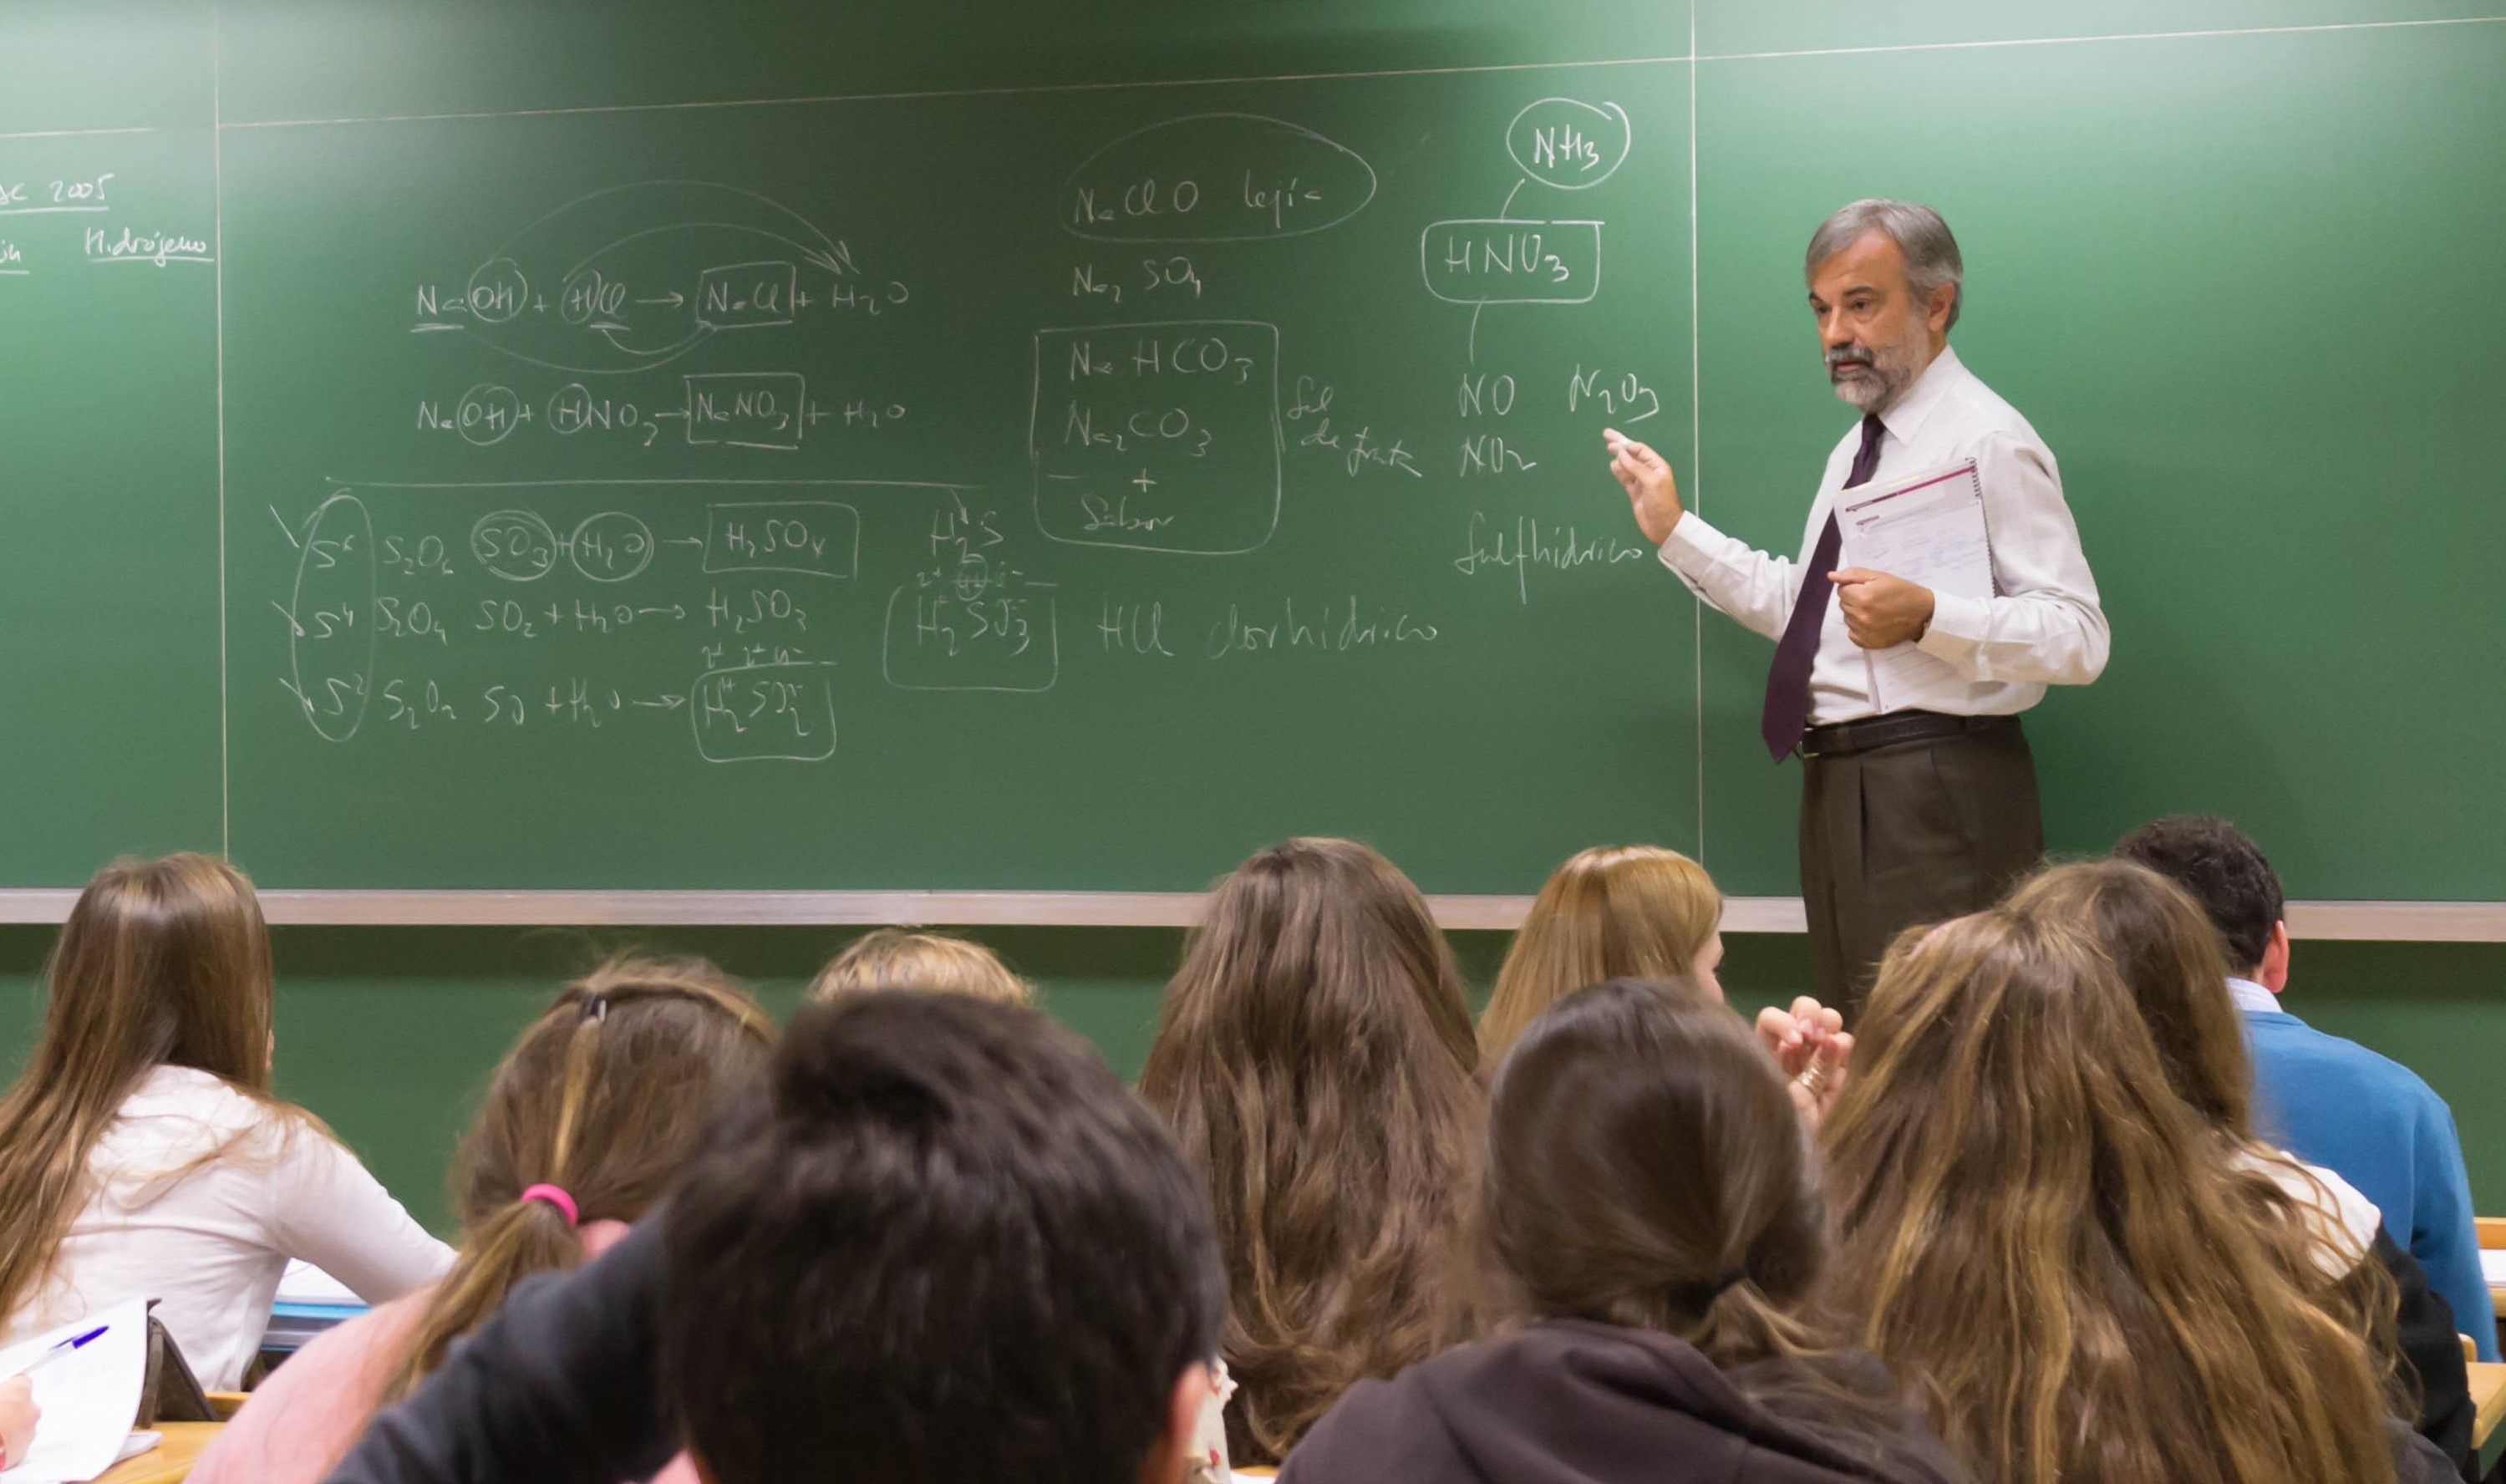 2005
Hidrógeno
NaOH + HCl → NaCl + H₂O
NaOH + HNO₃ → NaNO₃ + H₂O
S⁶ S₂O₆ SO₃ + H₂O → H₂SO₄
S⁴ S₂O₄ SO₂ + H₂O → H₂SO₃
S² S₂O₂ SO + H₂O → H₂SO₂
H₂S
H₂SO₃
NaClO lejía
Na₂SO₄
NaHCO₃
Na₂CO₃
+
Sabor
Sal
de fruta
HCl clorhídrico
NH₃
HNO₃
NO N₂O₃
NO₂
Sulfhídrico